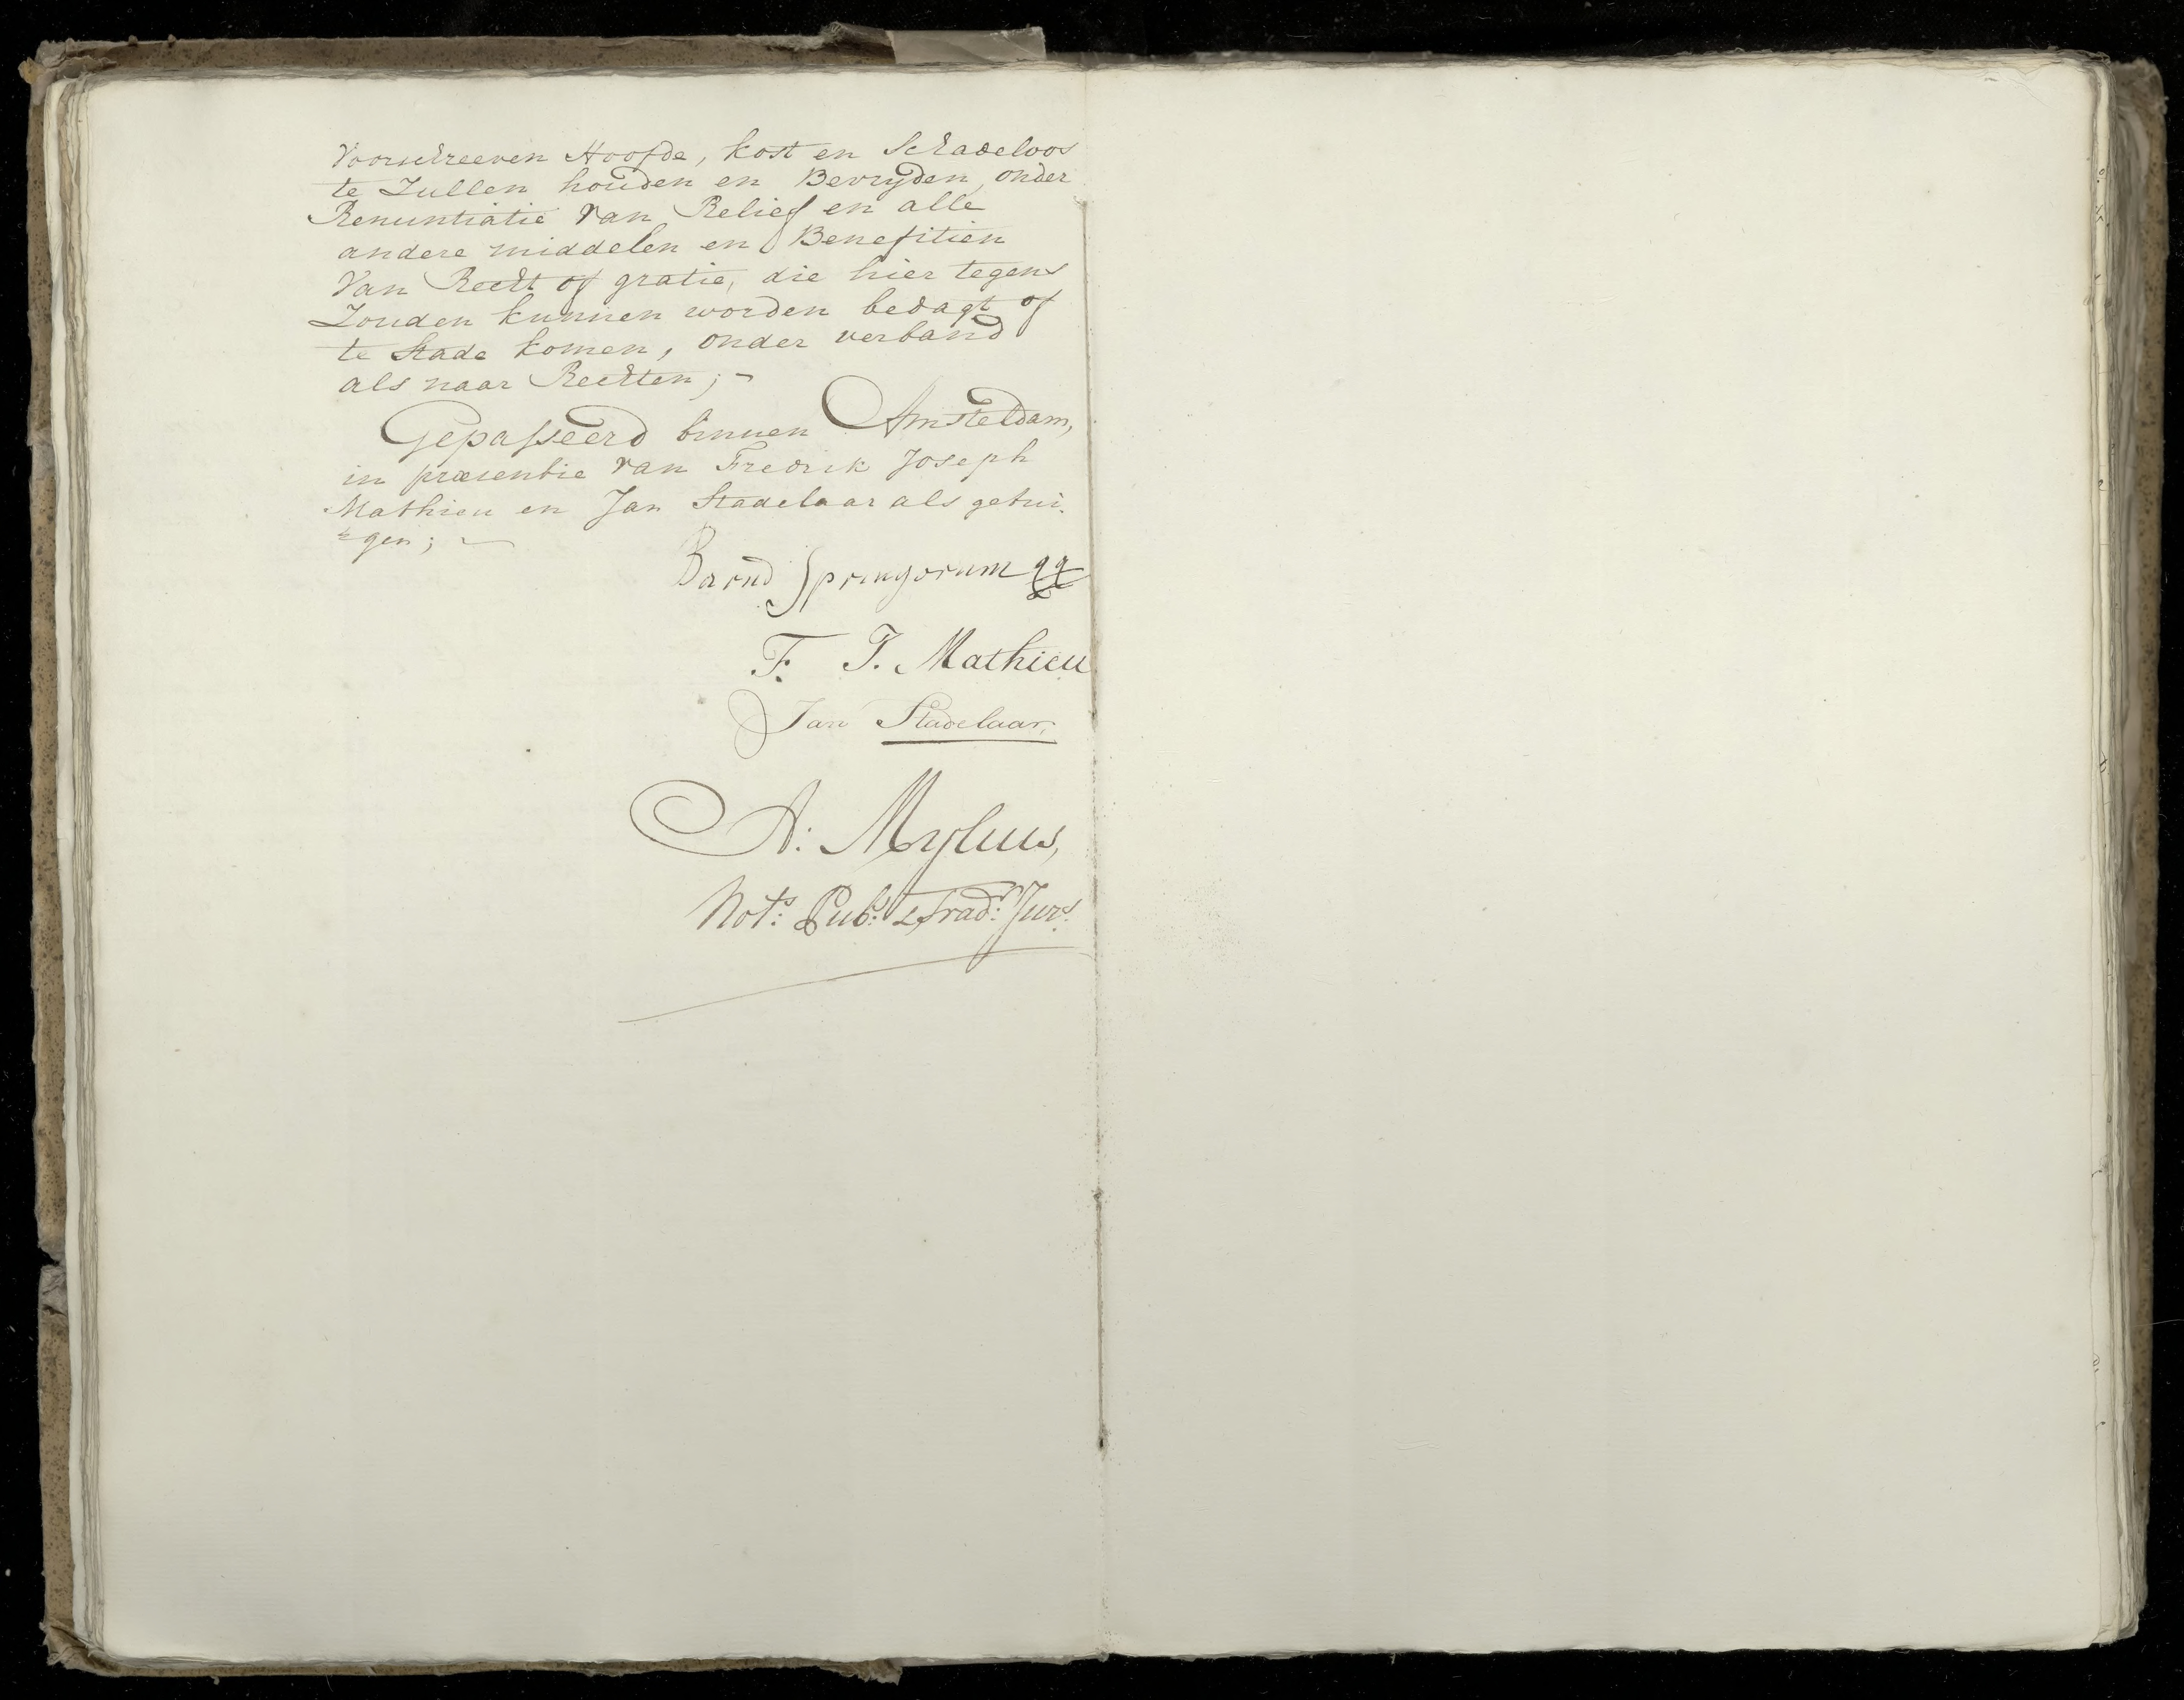 Voorschreeven Hoofde, kost en Schadeloos
te Zullen houden en Bevryden, onder
Renuntiatie van Relief en alle
andere middelen en Benefitien
Van Recht of gratie, die hier tegens
Zouden kunnen worden bedagt of
te Stade komen, onder verband
als naar Rechten; -
Gepasseerd binnen Amsteldam,
in præsentie van Fredrik Joseph
Mathieu en Jan Stadelaar als getui-
gen; -
Barnd Springorum qq
F. J. Mathieu
Jan Stadelaar,
A: Mylius,
Nots: Pubs: & Jurs: